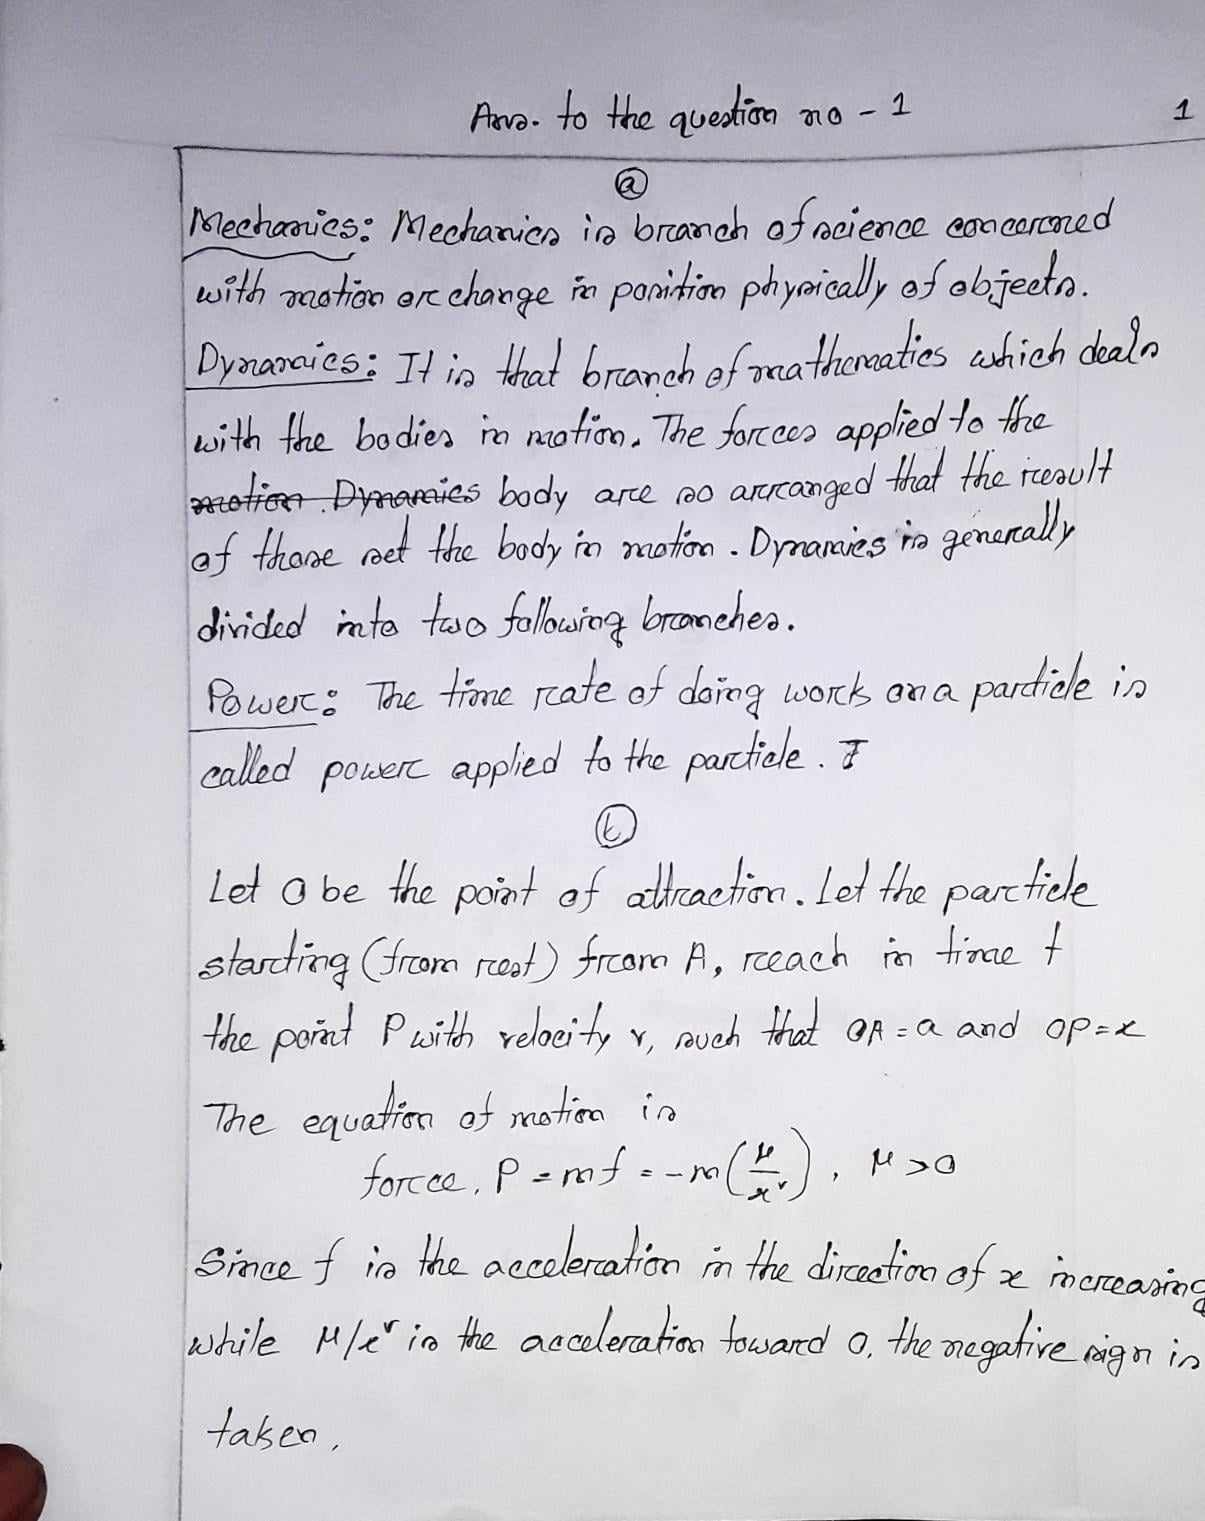 Ans. to the question no - 1
1
(a)
Mechanics: Mechanics is branch of science concerned
with motion or change in position physically of objects.
Dynamics: It is that branch of mathematics which deals
with the bodies in motion. The forces applied to the
motion. Dynamics body are so arranged that the result
of those set the body in motion. Dynamics is generally
divided into two following branches.
Power: The time rate of doing work on a particle is
called power applied to the particle. I
(b)
Let O be the point of attraction. Let the particle
starting (from rest) from A, reach in time t
the point P with velocity v, such that OA = a and OP = x
The equation of motion is
force, P = mf = -m(μ/x²), μ > 0
Since f is the acceleration in the direction of x increasing
while μ/x² is the acceleration toward O, the negative sign is
taken.